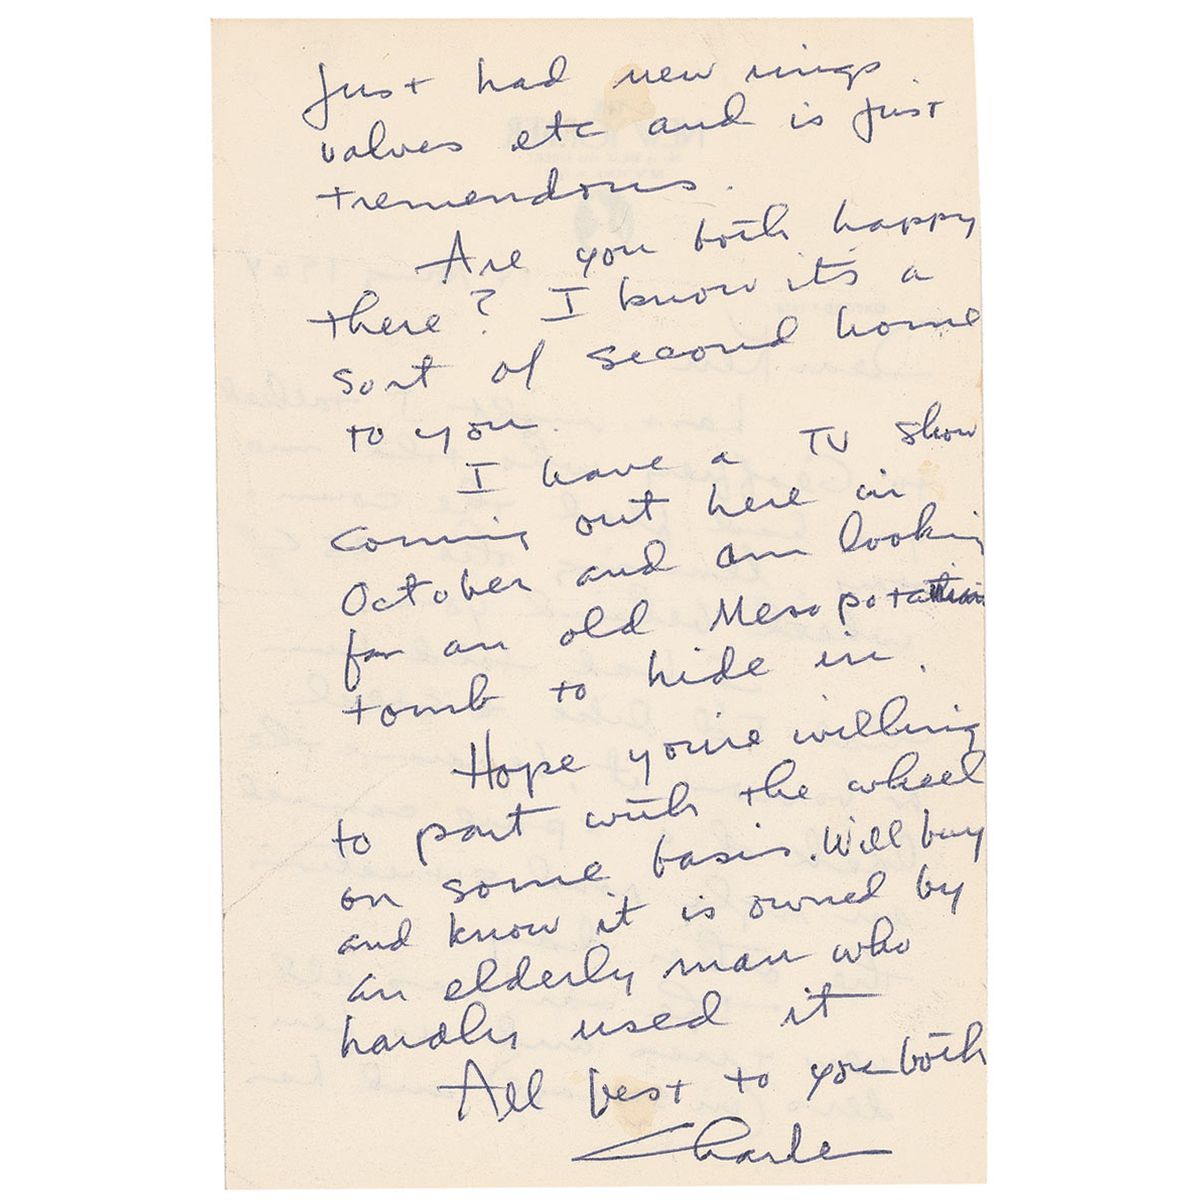 just had new rings
valves etc and is just
tremendous.
Are you both happy
there? I know it's a
sort of second home
to you
I have a TV show
coming out here in
October and am looking
for an old Mesopotamian
tomb to hide in.
Hope you're willing
to part with the wheel
on some basis. Will buy
and know it is owned by
an elderly man who
hardly used it
All best to you both
Charles